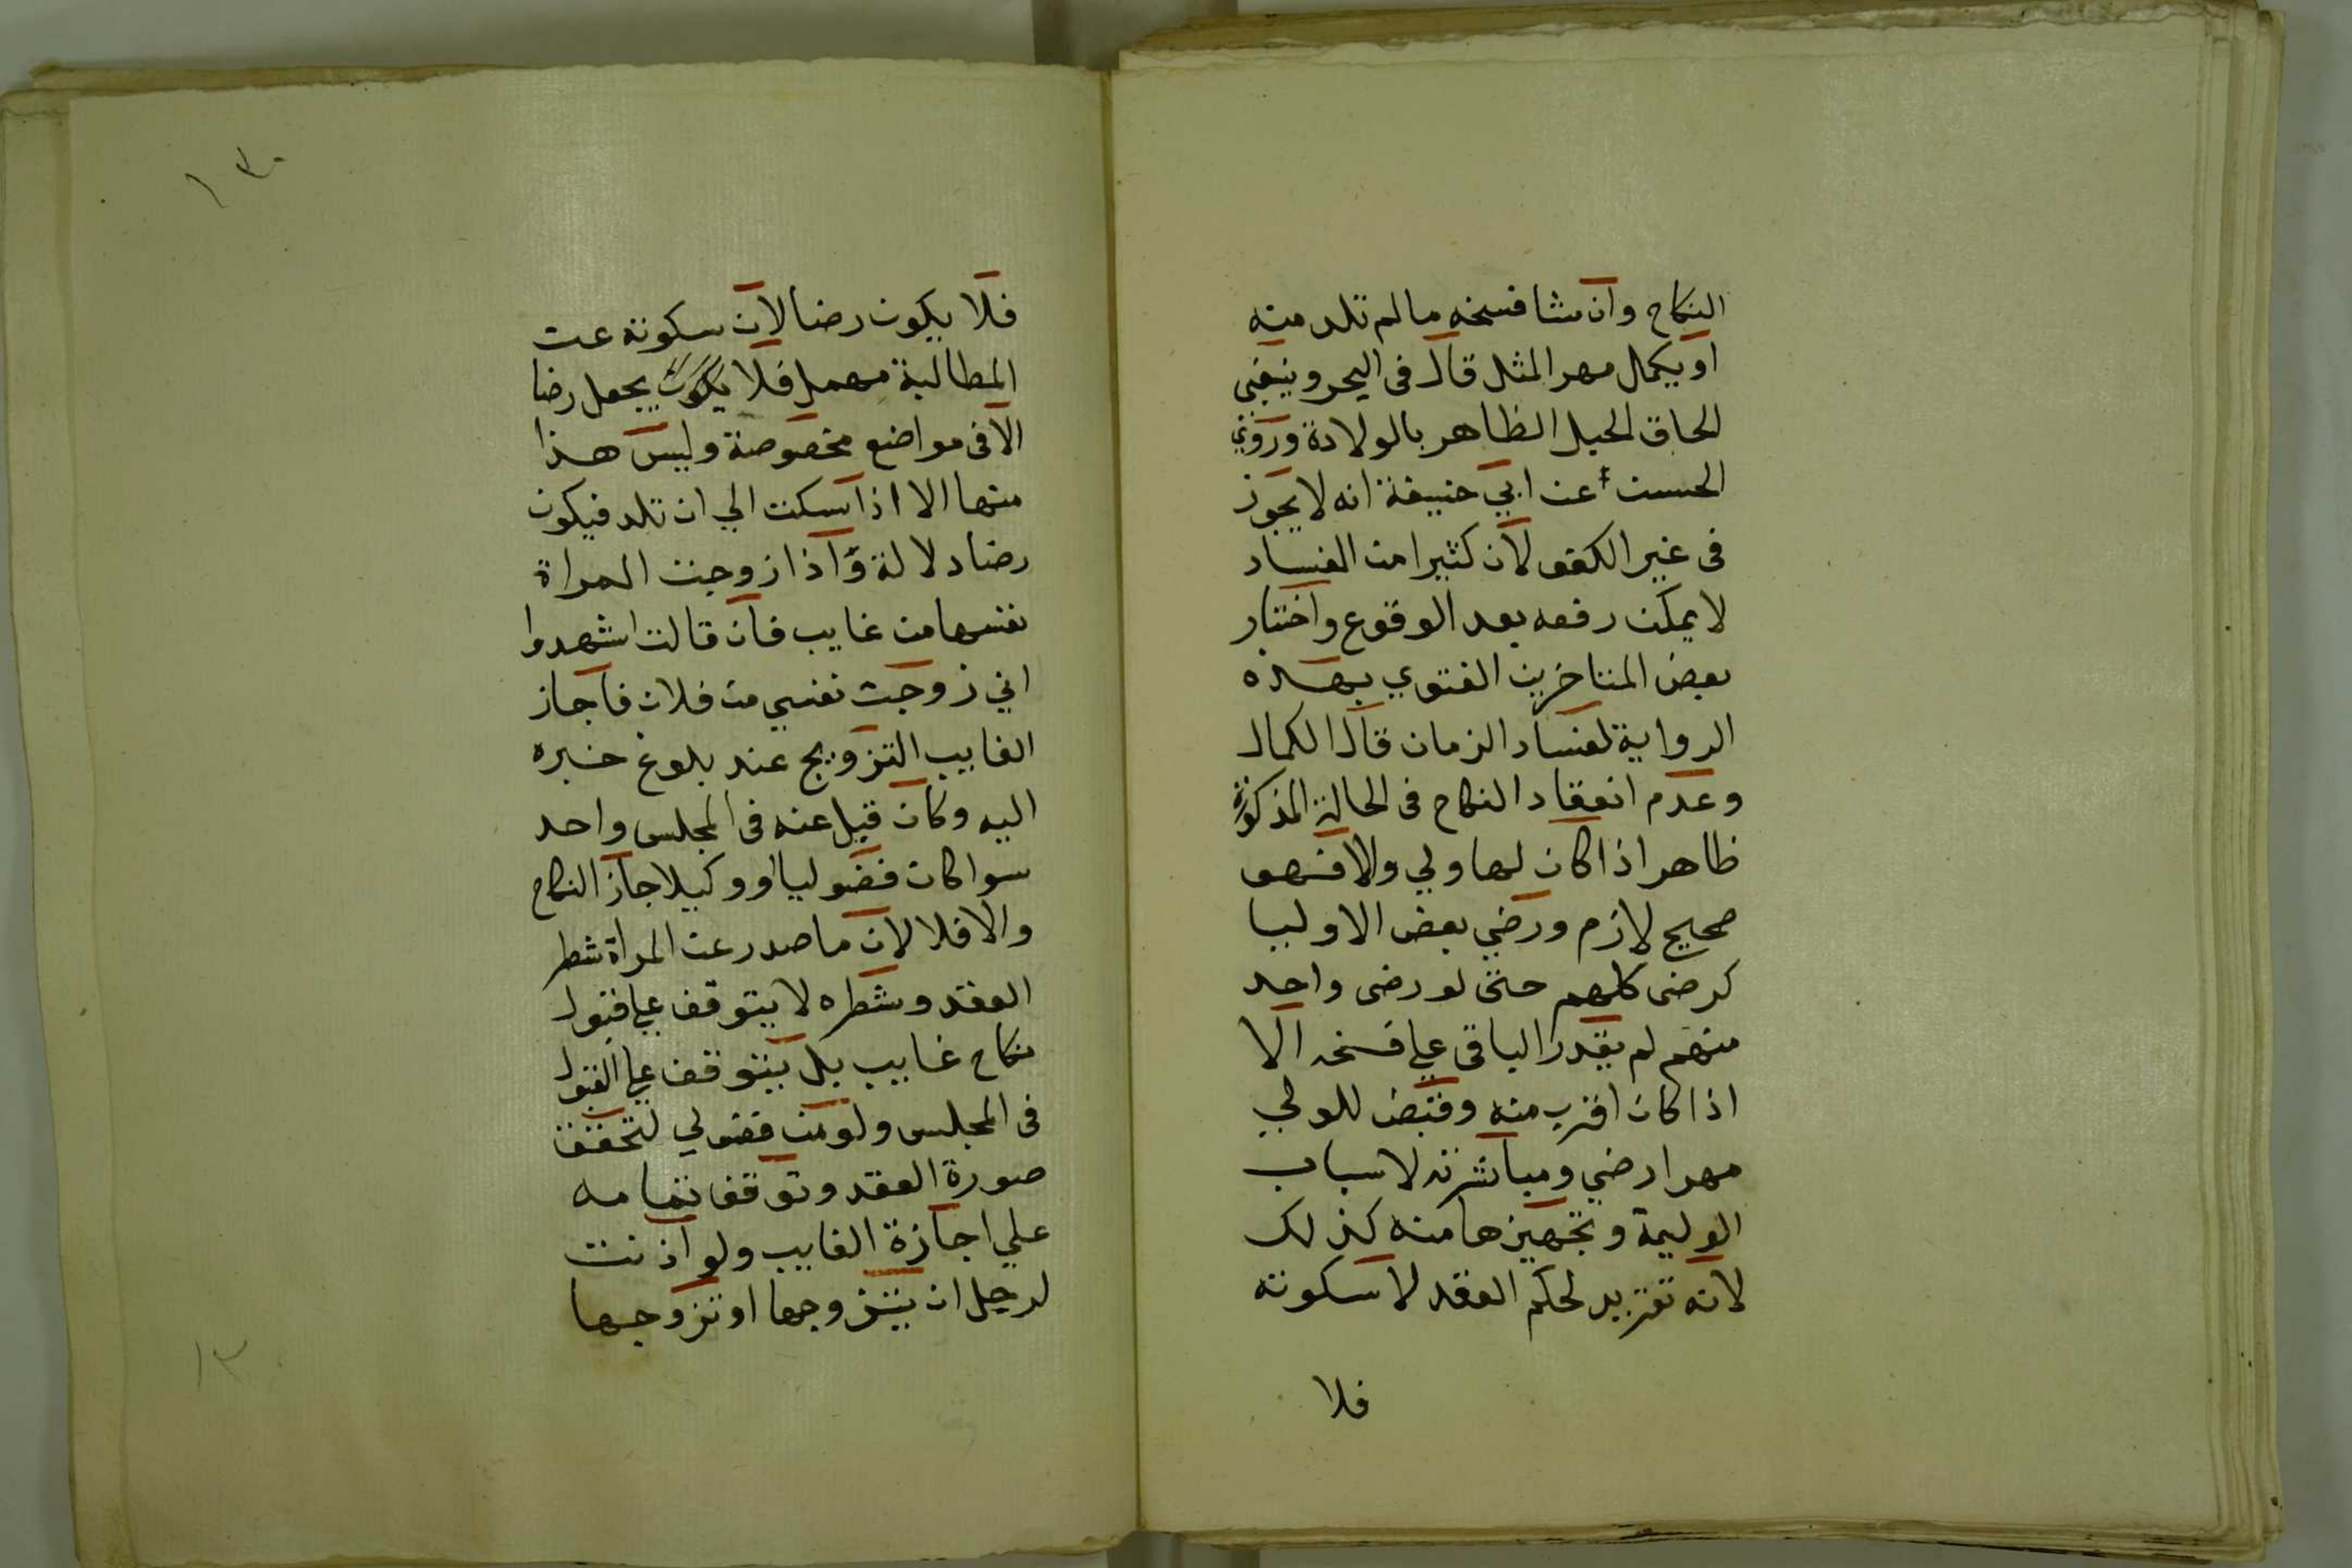 النكاح وان شا فسخه مالم تلد منه
او يكمل مهر المثل قال فى البحر وينبغى
الحاق الحبل الظاهر بالولادة وروي
الحسن عن ابي حنيفة انه لا يجوز
فى غير الكفو لان كثيرا من الفساد
لا يمكن رفعه بعد الوقوع واختار
بعض المتاخرين الفتوي بهذه
الرواية لفساد الزمان قال الكمال
وعدم انعقاد النكاح فى الحالة المذكورة
ظاهر اذا كان لها ولي والا فهو
صحيح لازم ورضي بعض الاوليا
كرضى كلهم حتى لو رضى واحد
منهم لم يقدر الباقى علي فسخه الا
اذا كان اقرب منه وقبض للولي
مهرا رضي ومباشرته لاسباب
الوليمة وتجهيزها منه كذلك
لانه تقرير لحكم العقد لا سكوته
فلا
١٣٠
فلا يكون رضا لان سكوته عن
المطالبة مهمل فلا يكون يجعل رضا
الا فى مواضع مخصوصة وليس هذا
منها الا اذا سكت الي ان تلد فيكون
رضا دلالة واذا زوجت المراة
نفسها من غايب فان قالت اشهدوا
اني زوجت نفسي من فلان فاجاز
الغايب التزويج عند بلوغ خبره
اليه وكان قبل عنه فى المجلس واحد
سوا كان فضوليا او وكيلا جاز النكاح
والا فلا لان ما صدر عن المراة شطر
العقد وشطره لا يتوقف علي قبول
نكاح غايب بل يتوقف علي القبول
فى المجلس ولو من فضولي لتحقق
صورة العقد وتوقف تمامه
علي اجازة الغايب ولو اذنت
لرجل ان يتزوجها او تزوجها
١٣